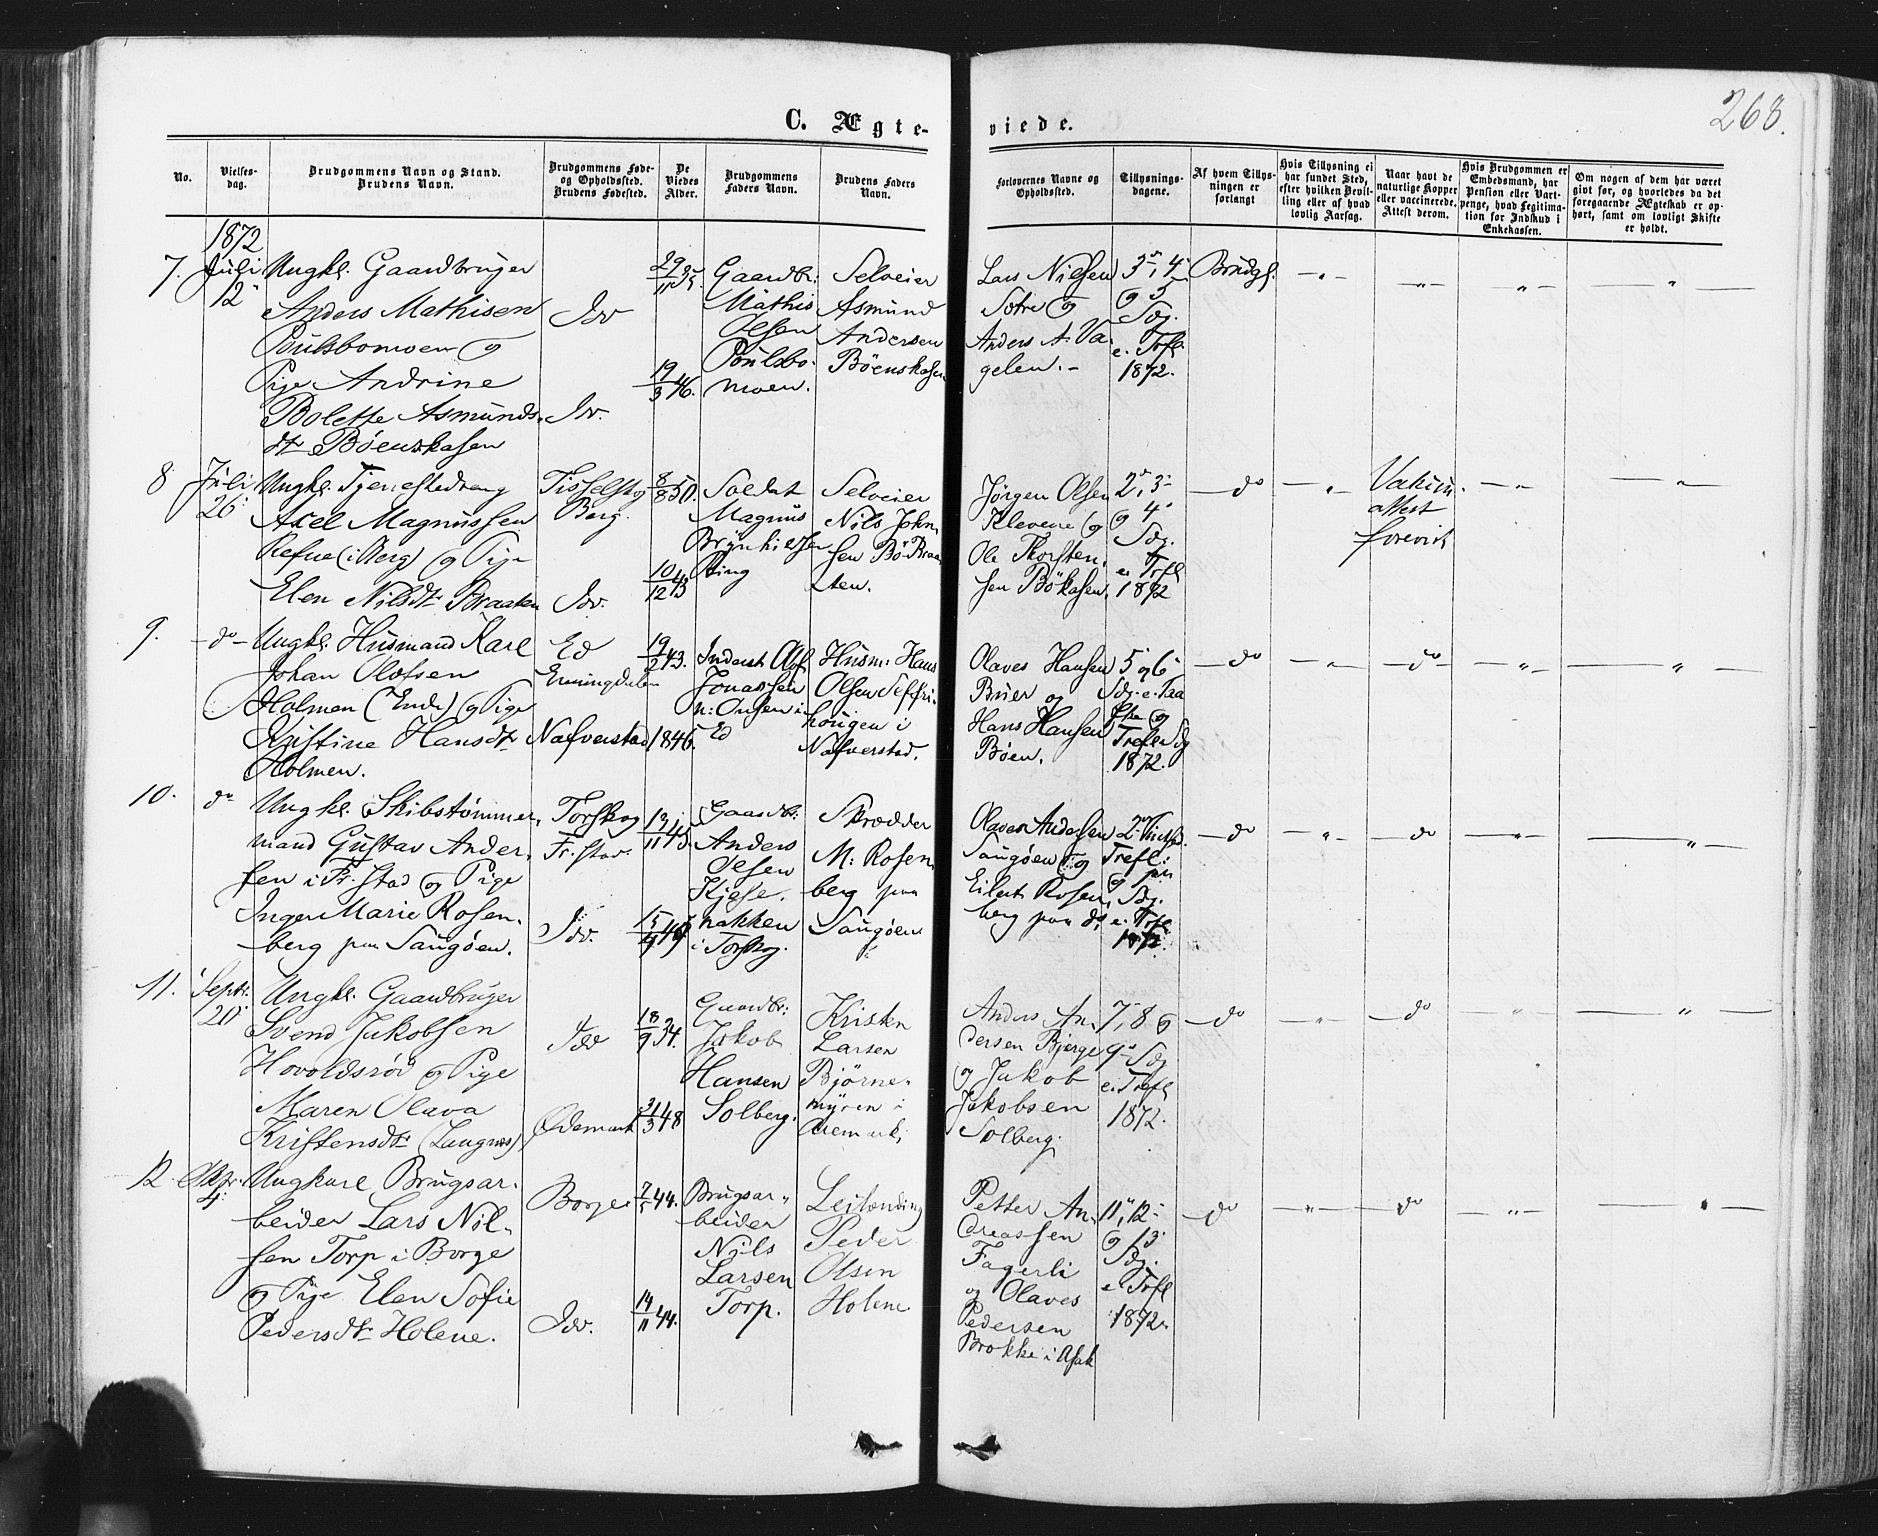 268.
C. Ægte-
viede.
No.
Vielses-
dag.
Brudgommens Navn og Stand.
Brudens Navn.
Brudgommens Føde-
og Opholdssted.
Brudens Fødested.
De
Viedes
Alder.
Brudgommens
Faders Navn.
Brudens Faders
Navn.
Forlovernes Navne og
Opholdssted.
Tillysnings-
dagene.
Af hvem Tillys-
ningen er
forlangt
Hvis Tillysning ei
har fundet Sted,
efter hvilken Bevil-
ling eller af hvad
lovlig Aarsag.
Naar havt de
naturlige Kopper
eller vaccinerede.
Attest derom.
Hvis Brudgommen er
Embedsmand, har
Pension eller Vart-
penge, hvad Legitima-
tion for Indskud i
Enkekassen.
Om nogen af dem har været
givt før, og hvorledes da det
foregaaende Ægteskab er op-
hørt, samt om lovligt Skifte
er holdt.
1872
7.
Juli
12
Ungkl. Gaardbruger
Anders Mathisen
Poulsbomoen og
Pige Andrine
Bolette Asmunds-
dtr Bøenskasen
Idd
Idd.
29/11 35.
19/3 46.
Gaardbr:
Mathis
Olsen
Poulsbo-
moen.
Selveier
Asmund
Andersen
Bøenskasen
Lars Nielsen
Sotre og
Anders A. Va-
gelen.
3, 4
og 5
Sdg.
e. Trfl.
1872.
Brudg.
8
Juli
26
Ungkl. Tjenestedreng
Axel Magnussen
Refne (i Berg) og Pige
Elen Nilsdtr Braaten
Tisselskog
Berg.
Idd.
8/8 50.
10/12 43
Soldat
Magnus
Brynhilsen
Ring
Selveier
Nils John-
sen Bö Braa-
ten.
Jörgen Olsen
Klevene og
Ole Thorsten-
sen Bökasen.
2, 3
og 4
Sdg.
e. Trfl
1872
do
Vakcin.
attest
forevist
9.
do
Ungkl. Husmand Karl
Johan Olofsen
Holmen (Ende) og Pige
Kristine Hansdtr
Holmen.
Ed
Enningdalen
Nafverstad
19/2 43.
1846.
Inderst Olof
Jonassen
i
Ed
Husm: Hans
Olsen Seffri-
hougen i
Nafverstad.
Olaves Hansen
Buer og
Hans Hansen
Bøen.
5 og 6
Sdg. e. Paa
ske og
Trefl. Sdg
1872.
do
do
10.
do
Ungkl. Skibstømmer-
mand Gustav Ander-
sen i Fr.stad og Pige
Inger Marie Rosen-
berg paa Saugøen.
Torskog
Fr.stad.
Idd.
13/11 45.
Gaardbr:
Anders
Olsen
Kjese-
nakken
i Torskog.
Skrædder
M: Rosen-
berg paa
Saugøen
Olaves Andersen
Saugøen og
Eilert Rosen-
berg paa do
Trefl:
og
Sdg.
e. Trfl
1872.
do
do
11.
Septr.
20
Ungkl. Gaardbruger
Svend Jakobsen
Hovoldsrød og Pige
Maren Olava
Kristensdtr (Langnes)
Idd
Ødemark
18/9 34.
31/3 48
Gaardbr:
Jakob
Hansen
Solberg.
Kristen
Larsen
Bjørne-
myren i
Aremark.
Anders An-
dersen Bjerge
og Jakob
Jakobsen
Solberg.
7, 8 og
9 Sdg
e. Trefl
1872.
do
do
12.
Oktbr.
4
Ungkarl Brugsar-
beider Lars Nil-
sen Torp i Borge
og Pige Elen Sofie
Pedersdtr Holene.
Borge
Idd.
7/5 44.
14/11 44.
Brugsar-
beider
Nils
Larsen
Torp.
Leilending
Peder
Olsen
Holene
Petter An-
dreassen
Fagerli
og Olaves
Pedersen
Brokke i Asak
11, 12
og 13
Sdg.
e. Trfl
1872.
do
do